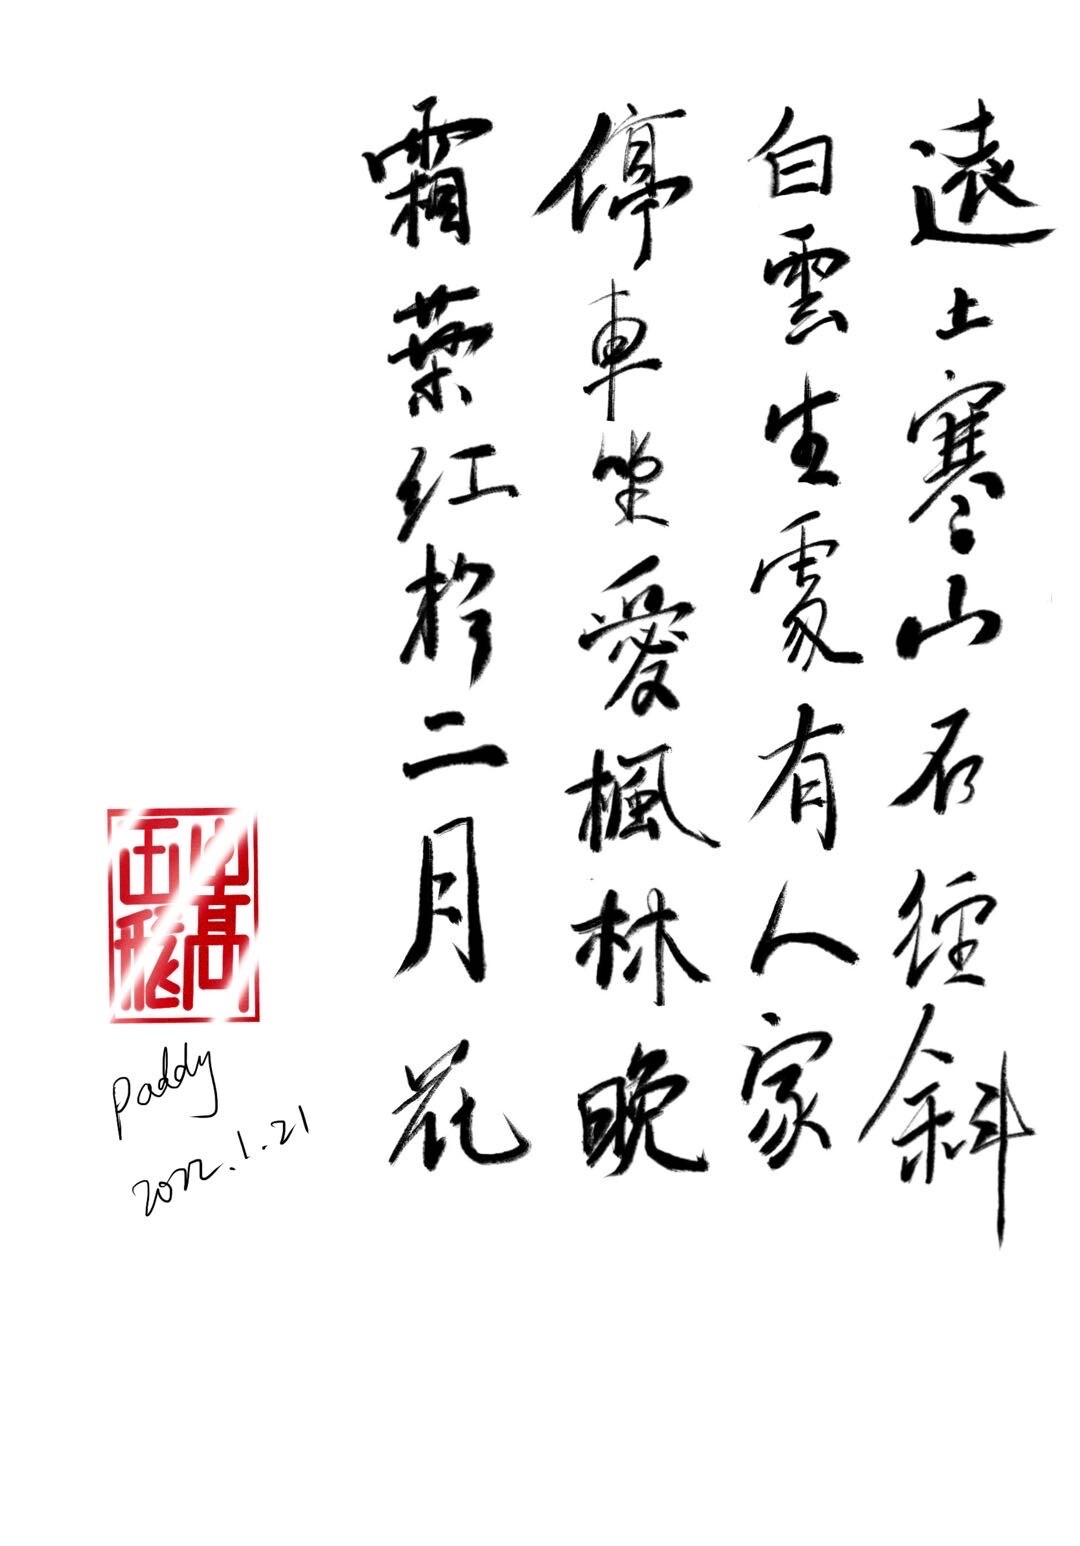 遠上寒山石徑斜
白雲生處有人家
停車坐愛楓林晚
霜葉紅於二月花
Paddy
2022.1.21